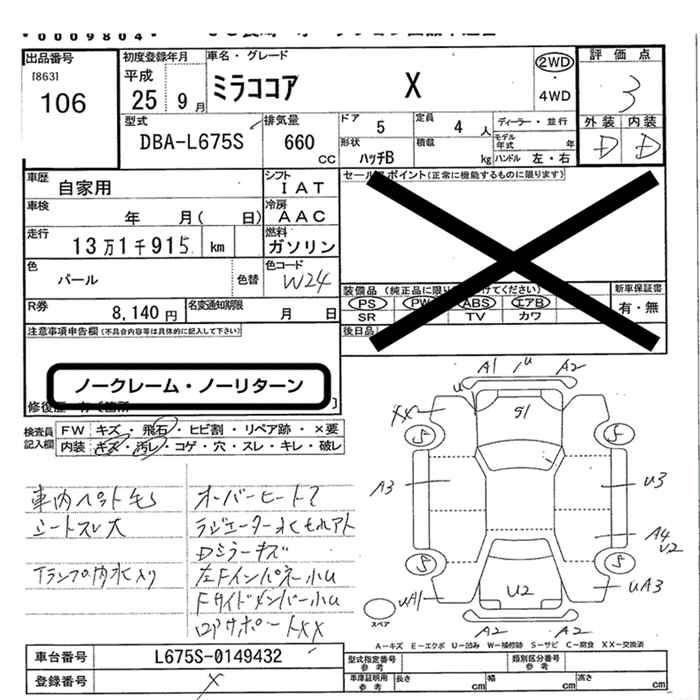 0009804
出品番号
[863]
106
初度登録年月
平成
25 9月
車名・グレード
ミラココア X
2WD
・
4WD
評価点
3
外装 内装
D D
型式
DBA-L675S
排気量
660 CC
ドア 5
定員 4 人
ディーラー・並行
モデル年式 年
形状 ハッチB
積載 kg
ハンドル 左・右
車歴
自家用
シフト
IAT
車検
年 月( 日)
冷房
AAC
走行
13万1千915 km
燃料
ガソリン
色
パール
色替
色コード
W24
R券
8,140円
名変通知期限
月 日
セールスポイント(正常に機能するものに限ります)
装備品(純正品に限り
けてください)
PS PW ABS エアB
SR TV カワ
新車保証書
有・無
後日品
注意事項申告欄(不具合内容等は具体的に記入して下さい)
ノークレーム・ノーリターン
検査員記入欄
FW キズ・飛石・ヒビ割・リペア跡・×要
内装 キズ・汚レ・コゲ・穴・スレ・キレ・破レ
車内ペット毛S
シートスレ大
Tランプ内水入り
オーバーヒート?
ラジエーター水もれアト
Dミラーキズ
左Fインパネ小U
Fサイドメンバー小U
ロアサポートXX
A1 U A2
U
XX
S
G1
S
A3
U3
A4
U2
S
S
UA1
U2
UA3
A2 A2
スペア
A=キズ E=エクボ U=凹み W=補修跡 S=サビ C=腐食 XX=交換済
車台番号
L675S-0149432
登録番号
X
型式指定番号
参考
類別区分番号
参考
車庫証明用
参考
長さ cm
幅 cm
高さ cm